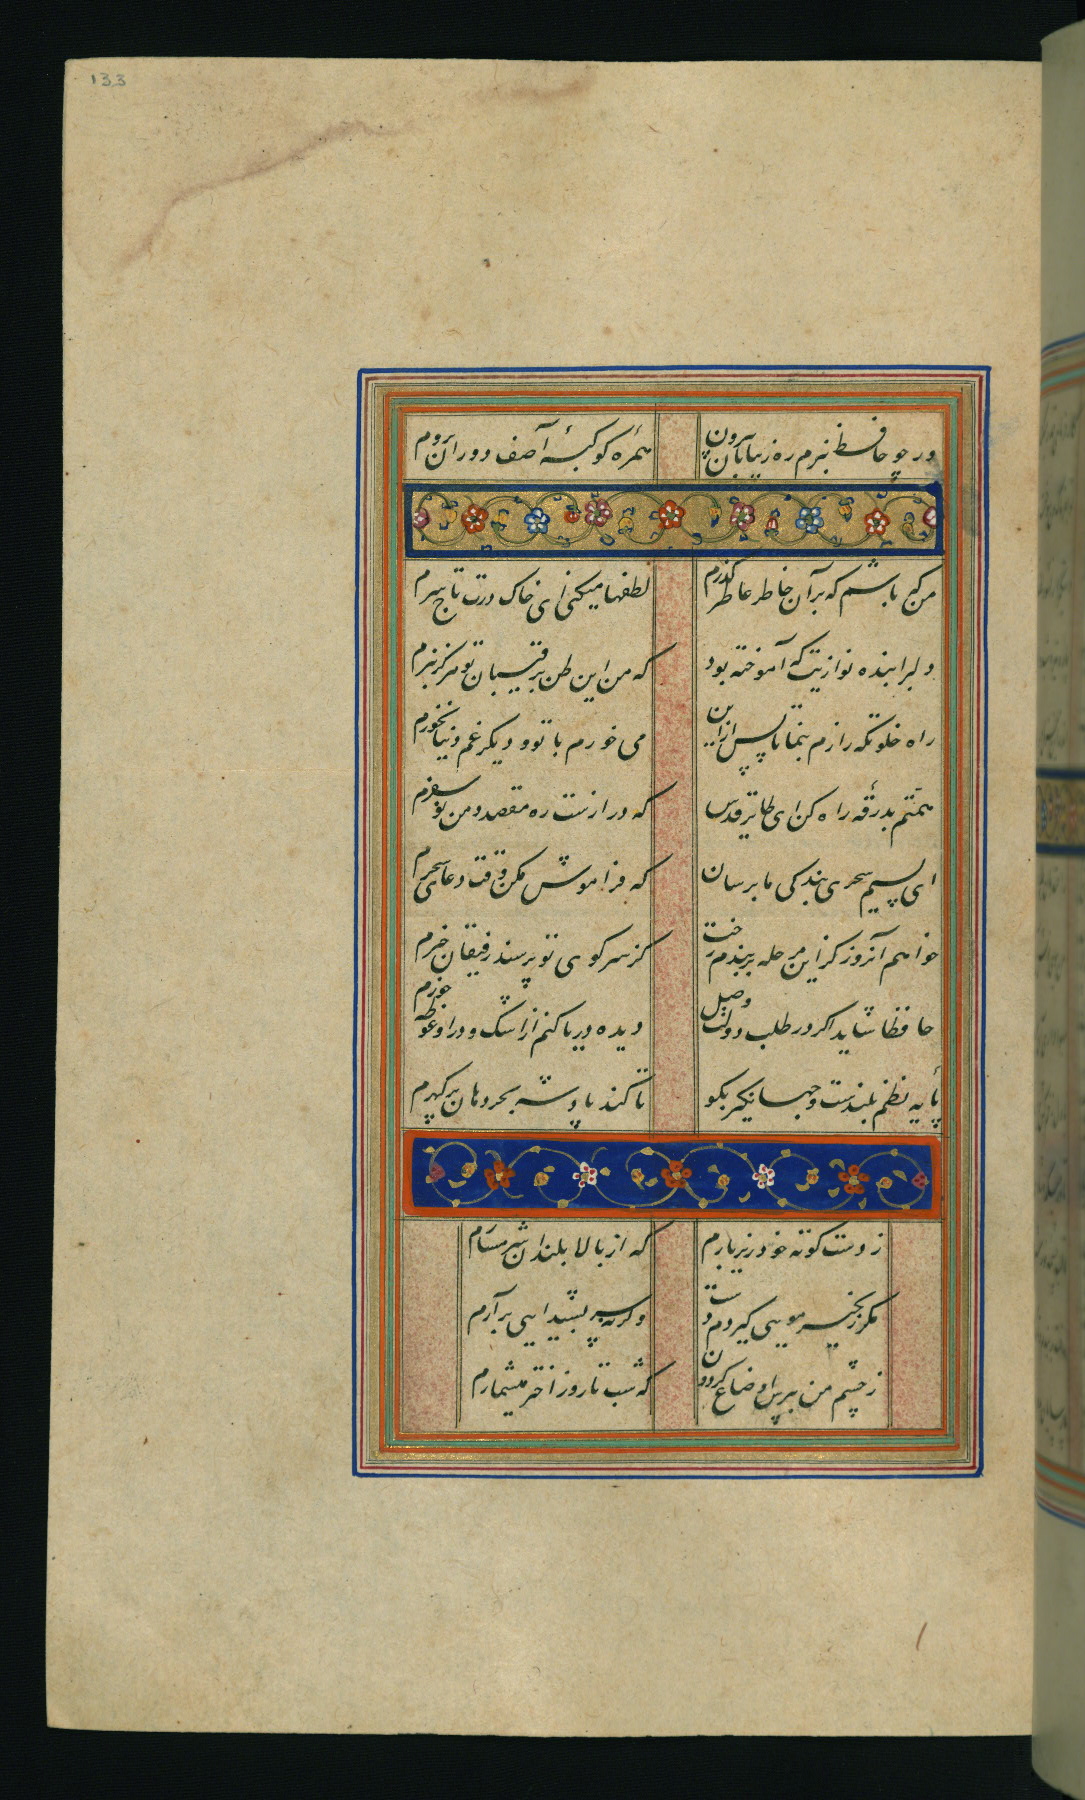 133
ور چو حافظ نبرم ره ز بیابان بیرون همره کوکبهٔ آصف دوران بروم
من که باشم که بر آن خاطر عاطر گذرم لطفها میکنی ای خاک درت تاج سرم
دلبرا بنده نوازیت که آموخته بود که من این ظن برقیبان تو هرگز نبرم
راه خلوتگه رازم بنما تا پس ازین می خورم با تو و دیگر غم دنیا نخورم
همتم بدرقهٔ راه کن ای طایر قدس که درازست ره مقصد و من نوسفرم
ای نسیم سحری بندگی ما برسان که فراموش مکن وقت دعای سحرم
خواهم آنروز کزاین مرحله بربندم رخت کز سر کوی تو پرسند رفیقان خبرم
حافظا شاید اگر در طلب دولت وصل دیده دریا کنم از اشک و در او غوطه خورم
پایه نظم بلندست و جهانگیر بگو تا کند پادشه بحر دهان پر گهرم
ز دست کوته خود زیر بارم که از بالا بلندان شرمسارم
مگر زنجیر مویی گیردم دست وگرنه سر بشیدایی برآرم
ز چشم من بپرس اوضاع گردون که شب تا روز اختر میشمارم